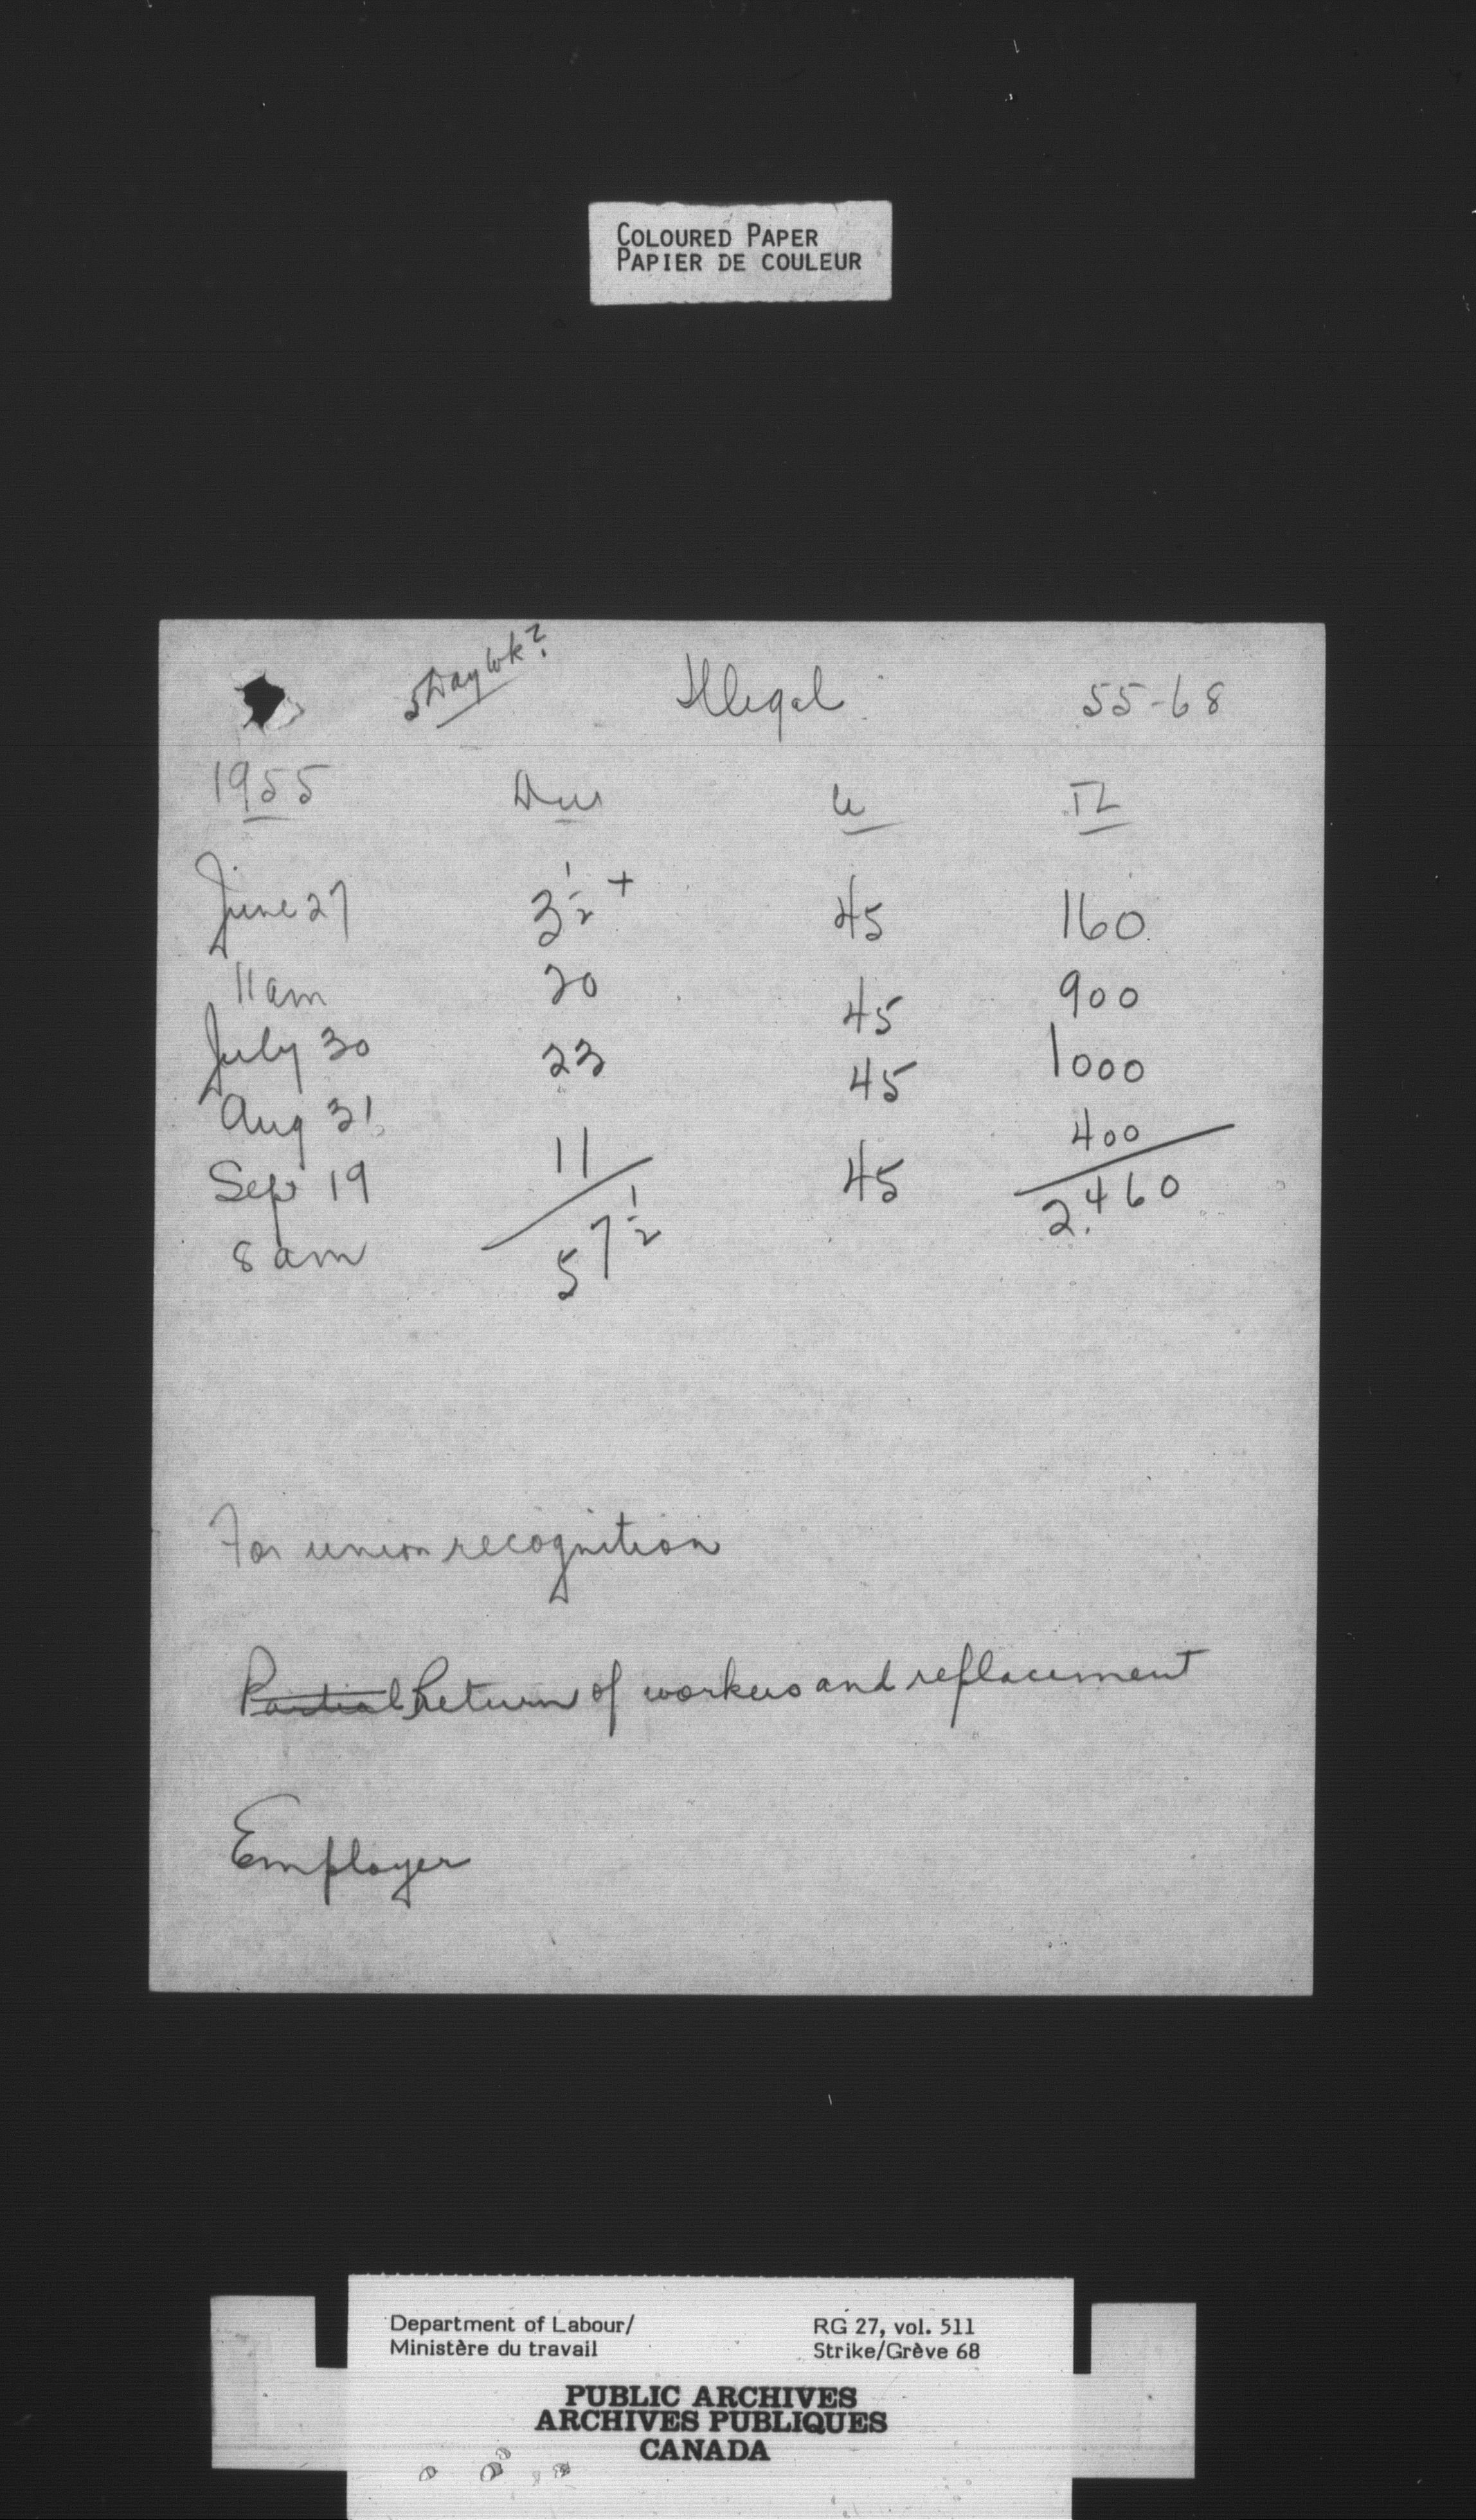 COLOURED PAPER
PAPIER DE COULEUR
5 Day Wk?
Illegal
55-68
1955 Dur W TL
June 27 3 1/2 + 45 160
11 am 20 45 900
July 30 23 45 1000
Aug 31 400
Sep 19 11 45 2,460
8 am 57 1/2
For union recognition
Partial Return of workers and replacement
Employer
Department of Labour/ RG 27, vol. 511
Ministère du travail Strike/Grève 68
PUBLIC ARCHIVES
ARCHIVES PUBLIQUES
CANADA